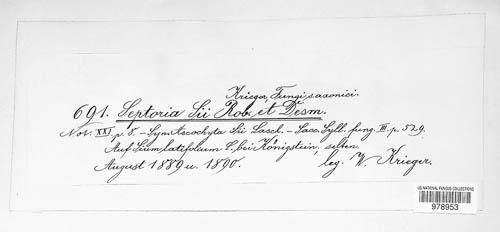 Krieger, Fungi saxonici.
691. Septoria Sii Rob. et Desm.
Not. XXI. p. 8. – Sym. Ascochyta Sii Lasch. – Sacc. Syll. fung. III. p. 529.
Auf Sium latifolium L. bei Königstein, selten.
August 1889 u. 1890. leg. W. Krieger.
US NATIONAL FUNGUS COLLECTIONS
978953